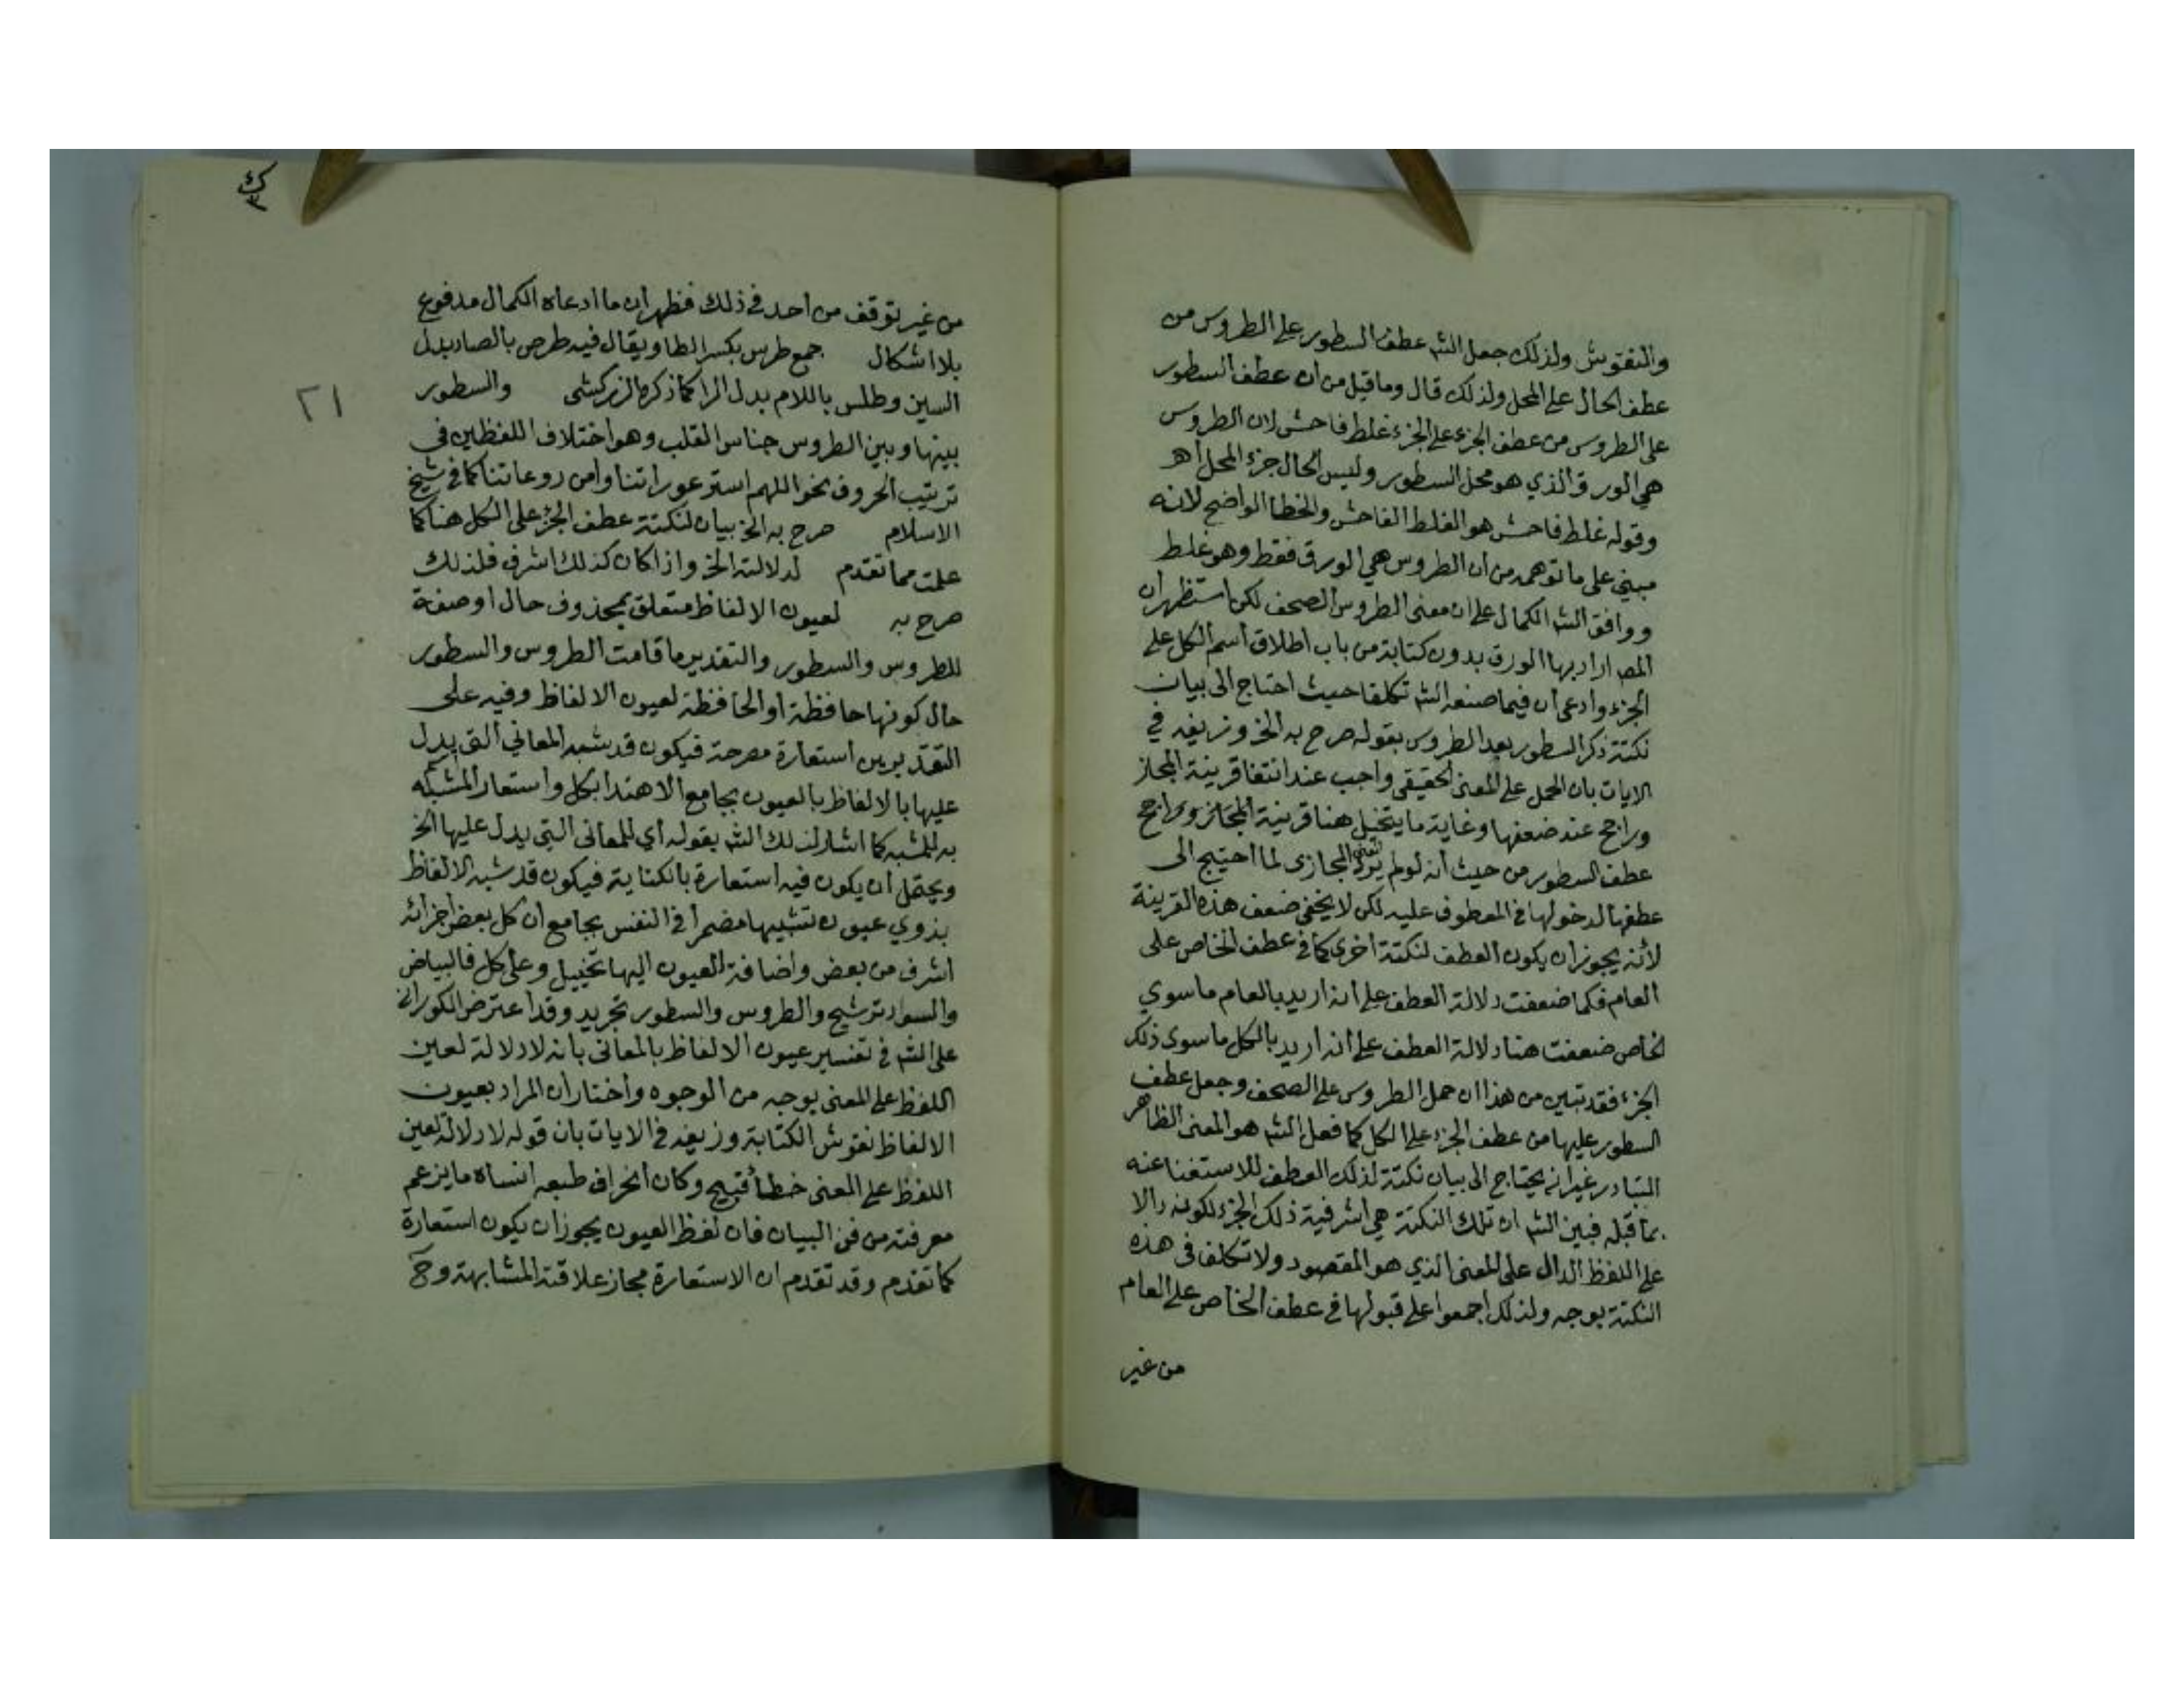 والنقوش ولذلك جعل الشه عطف السطور على الطروس من
عطف الحال على المحل ولذلك قال وما قيل من ان عطف السطور
على الطروس من عطف الجزء على الجزء غلط فاحش لان الطروس
هي الورق الذي هو محل السطور وليس الحال جزء المحل اهـ
وقوله غلط فاحش هو الغلط الفاحش والخطا الواضح لانه
مبني على ما توهمه من ان الطروس هي الورق فقط وهو غلط
ووافق الشه الكمال على ان معنى الطروس الصحف لكن استظهر ان
المص اراد بها الورق بدون كتابة من باب اطلاق اسم الكل على
الجزء وادعى ان فيما صنعه الشه تكلفا حيث احتاج الى بيان
نكتة ذكر السطور بعد الطروس بقوله صرح به الخ وزيفه في
الايات بان الحمل على المعنى الحقيقي واجب عند انتفا قرينة المجاز
وراجح عند ضعفها وغاية ما يتخيل هنا قرينة المجاز وراجح
عطف السطور من حيث انه لو لم يرد المعنى المجازى لما احتيج الى
عطفها لدخولها في المعطوف عليه لكن لا يخفى ضعف هذه القرينة
لأنه يجوز ان يكون العطف لنكتة اخرى كما في عطف الخاص على
العام فكما ضعفت دلالة العطف على انه اريد بالعام ما سوي
الخاص ضعفت هنا دلالة العطف على انه اريد بالكل ما سوى ذلك
الجزء فقد تبين من هذا ان حمل الطروس على الصحف وجعل عطف
السطور عليها من عطف الجزء على الكل كما فعل الشه هو المعنى الظاهر
المتبادر غير انه يحتاج الى بيان نكتة لذلك العطف للاستغنا عنه
بما قبله فبين الشه ان تلك النكتة هي اشرفية ذلك الجزء لكونه دالا
على اللفظ الدال على المعنى الذي هو المقصود ولا تكلف في هذه
النكتة بوجه ولذلك اجمعوا على قبولها في عطف الخاص على العام
من غير
من غير توقف من احد في ذلك فظهر ان ما ادعاه الكمال مدفوع
بلا اشكال جمع طرس بكسر الطا ويقال فيه طرص بالصاد بدل
السين وطلس باللام بدل الرا كما ذكره الزركشى والسطور
٢١
بينها وبين الطروس جناس القلب وهو اختلاف اللفظين في
ترتيب الحروف نحو اللهم استر عوراتنا وامن روعاتنا كما في شيخ
الاسلام صرح به الخ بيان لنكتة عطف الجزء على الكل هنا كما
علمت مما تقدم لدلالته الخ واذا كان كذلك اشرف فلذلك
صرح به لعيون الالفاظ متعلق بمحذوف حال او صفة
للطروس والسطور والتقدير ما قامت الطروس والسطور
حال كونها حافظة او الحافظة لعيون الالفاظ وفيه على
التقديرين استعارة مصرحة فيكون قد شبه المعاني التي يدل
عليها بالالفاظ بالعيون بجامع الاهتدا بكل واستعار المشبه
به للمشبه كما اشار لذلك الشه بقوله أي للمعانى التي يدل عليها الخ
ويحتمل ان يكون فيه استعارة بالكناية فيكون قد شبه الالفاظ
بذوي عيون تشبيها مضمرا في النفس بجامع ان كل بعض اجزائه
اشرف من بعض واضافة العيون اليها تخييل وعلى كل فالبياض
والسواد ترشيح والطروس والسطور تجريد وقد اعترض الكورانى
على الشه في تفسير عيون الالفاظ بالمعانى بانه لا دلالة لعين
اللفظ على المعنى بوجه من الوجوه واختار ان المراد بعيون
الالفاظ نقوش الكتابة وزيفه في الايات بان قوله لا دلالة لعين
اللفظ على المعنى خطأ قبيح وكان انحراف طبعه انساه ما يزعم
معرفته من فن البيان فان لفظ العيون يجوز ان يكون استعارة
كما تقدم وقد تقدم ان الاستعارة مجاز علاقته المشابهة وح